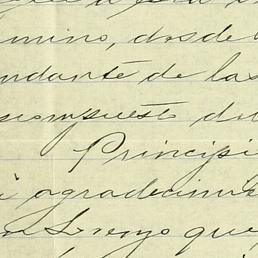 mino, desde
ndante de las
compuesto de
Principi
i agradecimie
que